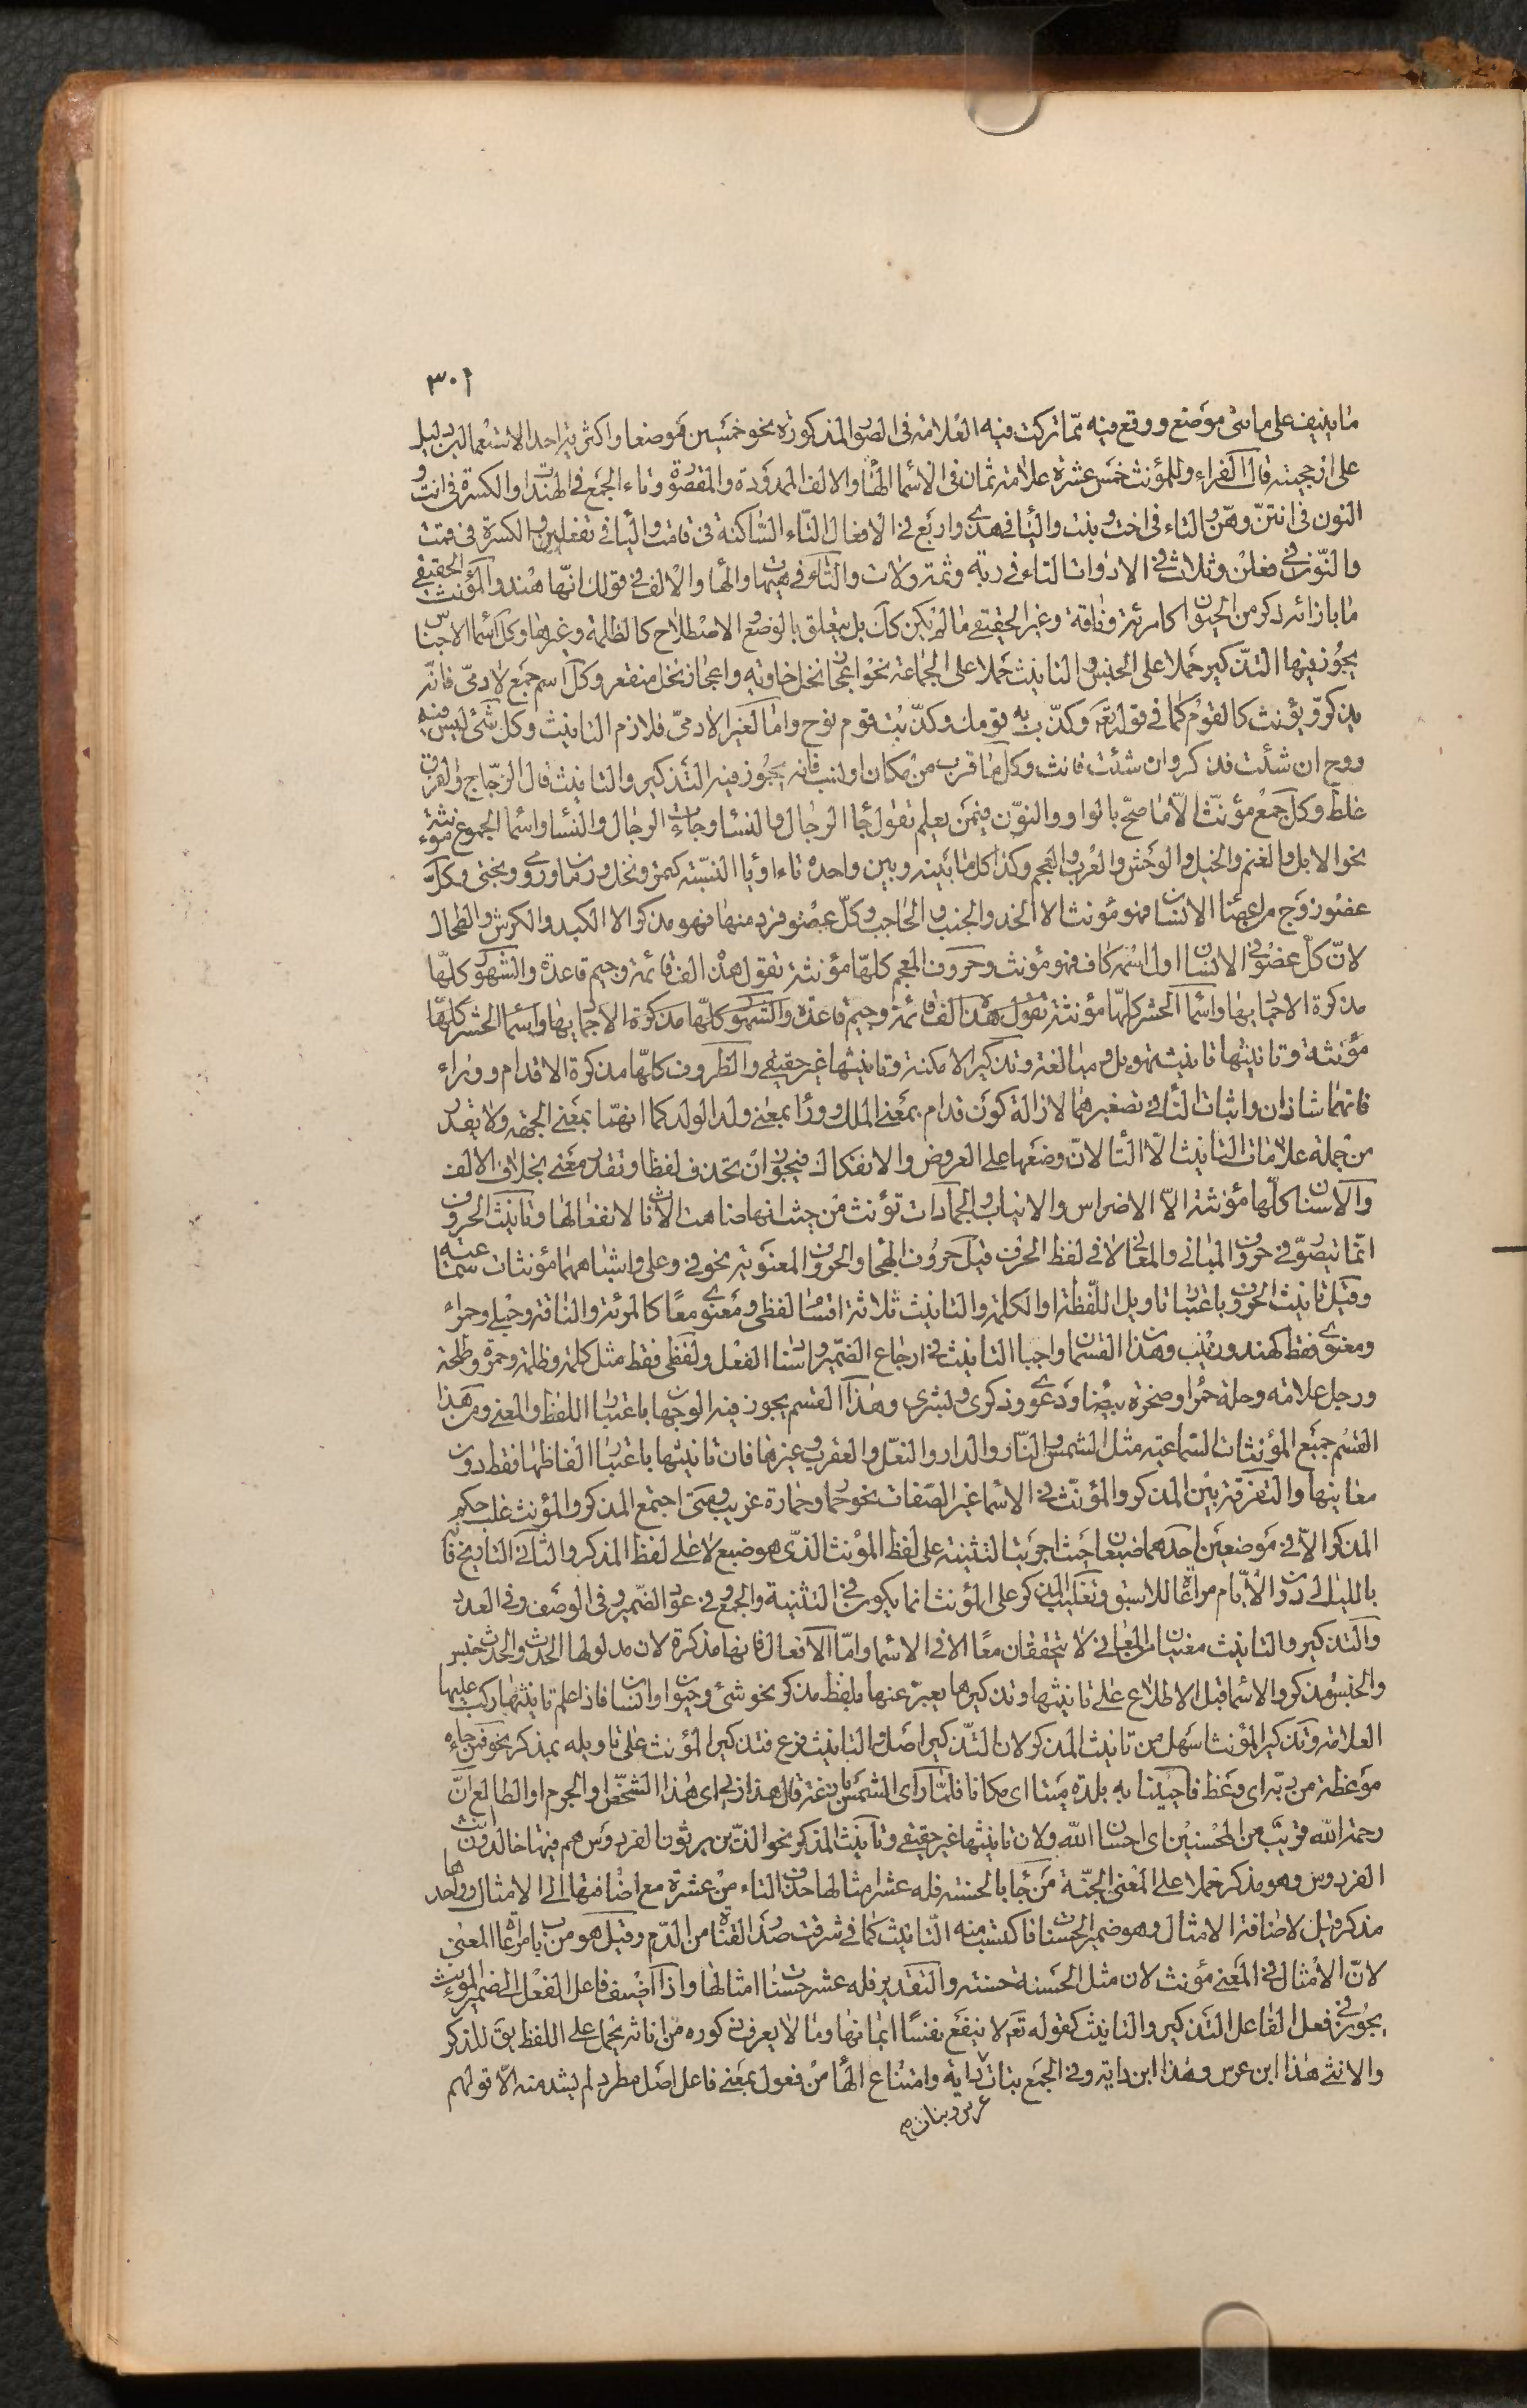 ٣٠١
ما ينيف على مائتى موضع ووقع فيه مما تركت فيه العلامة فى الصور المذكورة نحو خمسين موضعا واكثرية احد الاستعمالين دليل
على ارجحيته قال الفراء وللمؤنث خمس عشرة علامة ثمان فى الاسماء الهاء والالف الممدودة والمقصورة وتاء الجمع فى الهندات والكسرة فى انت و
النون فى انتن وهن والتاء فى اخت وبنت والياء فى هذى واربع فى الافعال التاء الساكنة فى قامت والياء فى تفعلين والكسرة فى قمت
والنون فى فعلن وثلاث فى الادوات التاء فى ربة وثمة ولات والتاء فى هيهات والهاء والالف فى قولك انها هند والمؤنث الحقيقى
ما بازائه ذكر من الحيوان كامرئة وناقة وغير الحقيقى ما لم يكن كذلك بل يتعلق بالوضع والاصطلاح كالظلمة وغيرها وكل اسماء الاجناس
يجوز فيها التذكير حملا على الجنس والتانيث حملا على الجماعة نحو اعجاز نخل خاوية واعجاز نخل منقعر وكل اسم جمع لآدمى فانه
يذكر ويؤنث كالقوم كما فى قوله تعه وكذب به قومك وكذبت قوم نوح واما لغير الآدمى فلازم التانيث وكل شئ ليس فيه
روح ان شئت فذكر وان شئت فانث وكل ما قرب من مكان او نسب فانه يجوز فيه التذكير والتانيث قال الزجاج والفرق
غلط وكل جمع مؤنث الا ما صح بالواو والنون فيمن يعلم تقول جاء الرجال والنساء وجاءت الرجال والنساء واسماء الجموع مؤنثة
نحو الابل والغنم والخيل والوحش والعرب والعجم وكذا كل ما بينه وبين واحده تاء او ياء النسبة كتمر ونخل ورمان ورومى وبختى وكل
عضو زوج من اعضاء الانسان فهو مؤنث الا الخد والجنب والحاجب وكل عضو فرد منها فهو مذكر الا الكبد والكرش والطحال
لان كل عضو فى الانسان اول اسمه كاف فهو مؤنث وحروف المعجم كلها مؤنثة تقول هذه الف قائمة وجيم قاعدة والشهور كلها
مذكرة الا جماديها واسماء الحشر كلها مؤنثة تقول هذه الف قائمة وجيم قاعدة والشهور كلها مذكرة الا جماديها واسماء الحشر كلها
مؤنثة وتانيثها تانيث تهويل ومبالغة وتذكير الامكنة وتانيثها غير حقيقى والظروف كلها مذكرة الا قدام ووراء
فانهما شاذان واثبات التاء فى تصغيرهما لازالة كون قدام بمعنى الملك ووراء بمعنى ولد الولد كما انهما بمعنى الجهة ولا يقدر
من جملة علامات التانيث الا التاء لان وضعها على العروض والانفكاك فيجوز ان تحذف لفظا وتقدر معنى بخلاف الالف
والاسنان كلها مؤنثة الا الاضراس والانياب والجمادات تؤنث من حيث انها ضاهت الاناث لانفعالها وتانيث الحروف
انما يتصور فى حروف المبانى والمعانى لا فى لفظ الحرف قيل حروف الهجاء والحروف المعنوية نحو فى وعلى واشباههما مؤنثات سماعية
وقيل تانيث الحروف باعتبار تاويل اللفظة او الكلمة والتانيث ثلاثة اقسام لفظى ومعنوى معا كالمرئة والناقة وحبلى وحمراء
ومعنوى فقط كهند وزينب وهذان القسمان واجبا التانيث فى ارجاع الضمير واسناد الفعل ولفظى فقط مثل كلمة وظلمة وحمزة وطلحة
ورجل علامة وحلة حمراء وصخرة بيضاء ودعوى وذكرى وبشرى وهذا القسم يجوز فيه الوجهان باعتبار اللفظ والمعنى ومن هذا
القسم جميع المؤنثات السماعية مثل الشمس والنار والدار والنعل والعقرب وغيرها فان تانيثها باعتبار الفاظها فقط دون
معانيها والتفرقة بين المذكر والمؤنث فى الاسماء غير الصفات نحو حمار وحمارة غريب ومتى اجتمع المذكر والمؤنث غلب حكم
المذكر الا فى موضعين احدهما ضبعان حيث اجريت التثنية على لفظ المؤنث الذى هو ضبع لا على لفظ المذكر والثانى التاريخ فانه
بالليالى دون الايام مراعاة للاسبق وتغليب المذكر على المؤنث انما يكون فى التثنية والجمع وفى عود الضمير وفى الوصف وفى العدد
والتذكير والتانيث معنيان من المعانى لا يتحققان معا الا فى الاسماء واما الافعال فانها مذكرة لان مدلولها الحدث والحدث جنس
والجنس مذكر والاسماء قبل الاطلاع على تانيثها وتذكيرها يعبر عنها بلفظ مذكر نحو شئ وحيوان وانسان فاذا علم تانيثها ركب عليها
العلامة وتذكير المؤنث اسهل من تانيث المذكر لان التذكير اصل والتانيث فرع فتذكير المؤنث على تاويله بمذكر نحو فمن جاءه
موعظة من ربه اى وعظ فاحيينا به بلدة ميتا اى مكانا فلما راى الشمس بازغة قال هذا ربى اى هذا الشخص او الجرم او الطالع ان
رحمة الله قريب من المحسنين اى احسان الله ولان تانيثها غير حقيقى وتانيث المذكر نحو الذين يرثون الفردوس هم فيها خالدون انث
الفردوس وهو مذكر حملا على المعنى الجنة من جاء بالحسنة فله عشر امثالها حذف التاء من عشرة مع اضافتها الى الامثال وواحدها
مذكر قيل لاضافة الامثال وهو ضمير الحسنات فاكتسب منه التانيث كما فى شرقت صدر القناة من الدم وقيل هو من باب مراعاة المعنى
لان الامثال فى المعنى مؤنث لان مثل الحسنة حسنة والتقدير فله عشر حسنات امثالها واذا اضيف فاعل الفعل الى ضمير المؤنث
يجوز فى فعل الفاعل التذكير والتانيث كقوله تعه لا ينفع نفسا ايمانها وما لا يعرف ذكوره من اناثه يحمل على اللفظ يق للذكر
والانثى هذا ابن عرس وهذا ابن داية وفى الجمع بنات داية وامتناع الهاء من فعول بمعنى فاعل اصل مطرد لم يشذ منه الا قولهم
عرس وبنات